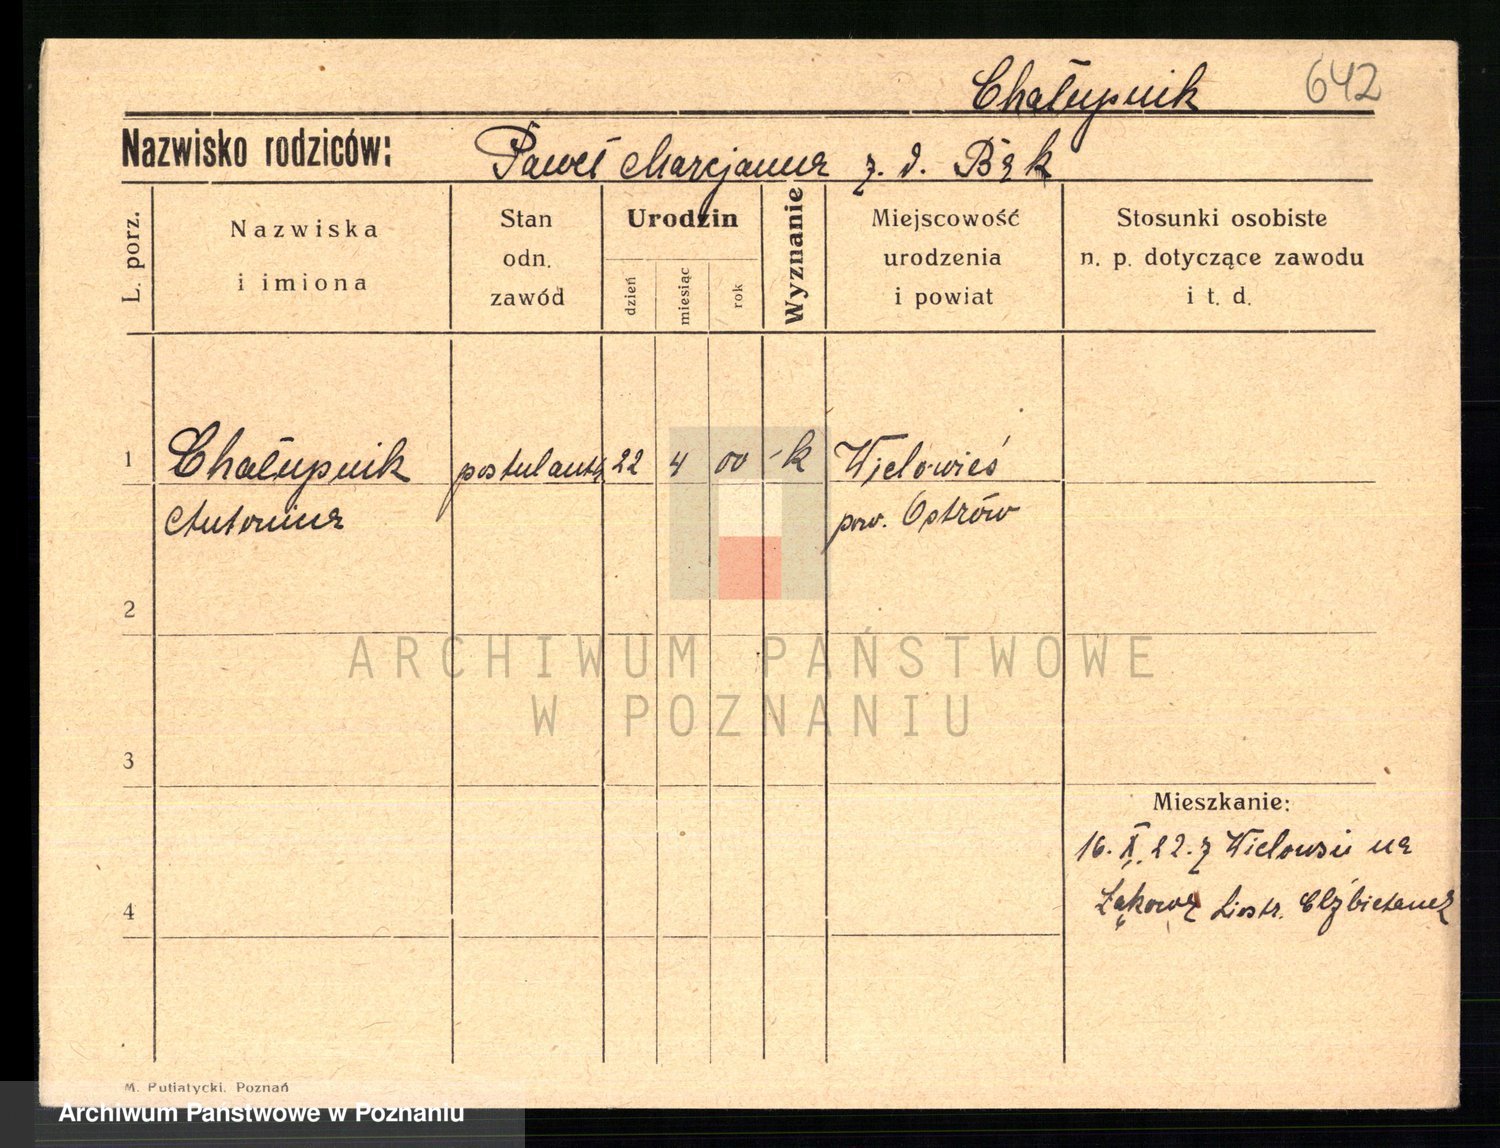 Chałupnik 642
Nazwisko rodziców: Paweł Marcjanna z. d. Bąk
L. porz.
Nazwiska
i imiona
Stan
odn.
zawód
Urodzin
dzień
miesiąc
rok
Wyznanie
Miejscowość
urodzenia
i powiat
Stosunki osobiste
n. p. dotyczące zawodu
i t. d.
1 Chałupnik postulantka 22 4 00 k Wielowieś
Antonina pow. Ostrów
2
3
4
ARCHIWUM PAŃSTWOWE
W POZNANIU
Mieszkanie:
16. X. 22. z Wielowsi na
Łąkową Siostr. Elżbietanek
M. Putiatycki, Poznań
Archiwum Państwowe w Poznaniu